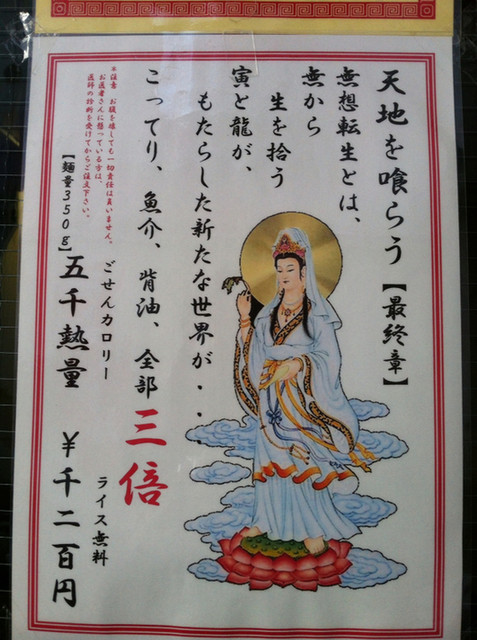 天地を喰らう【最終章】
無想転生とは、
無から
生を拾う
寅と龍が、
もたらした新たな世界が・・・
こってり、魚介、背油、全部三倍
*注意 お腹を壊しても一切責任は負いません。
お医者さんに掛っている方は、
医師の診断を受けてからご注文下さい。
ごせんカロリー
ライス無料
【麺量350g】五千熱量 ¥千二百円